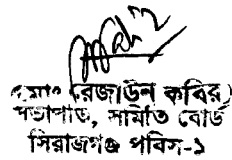 (মোঃ রেজাউল কবির)
সভাপতি, সমিতি বোর্ড
সিরাজগঞ্জ পবিস-১